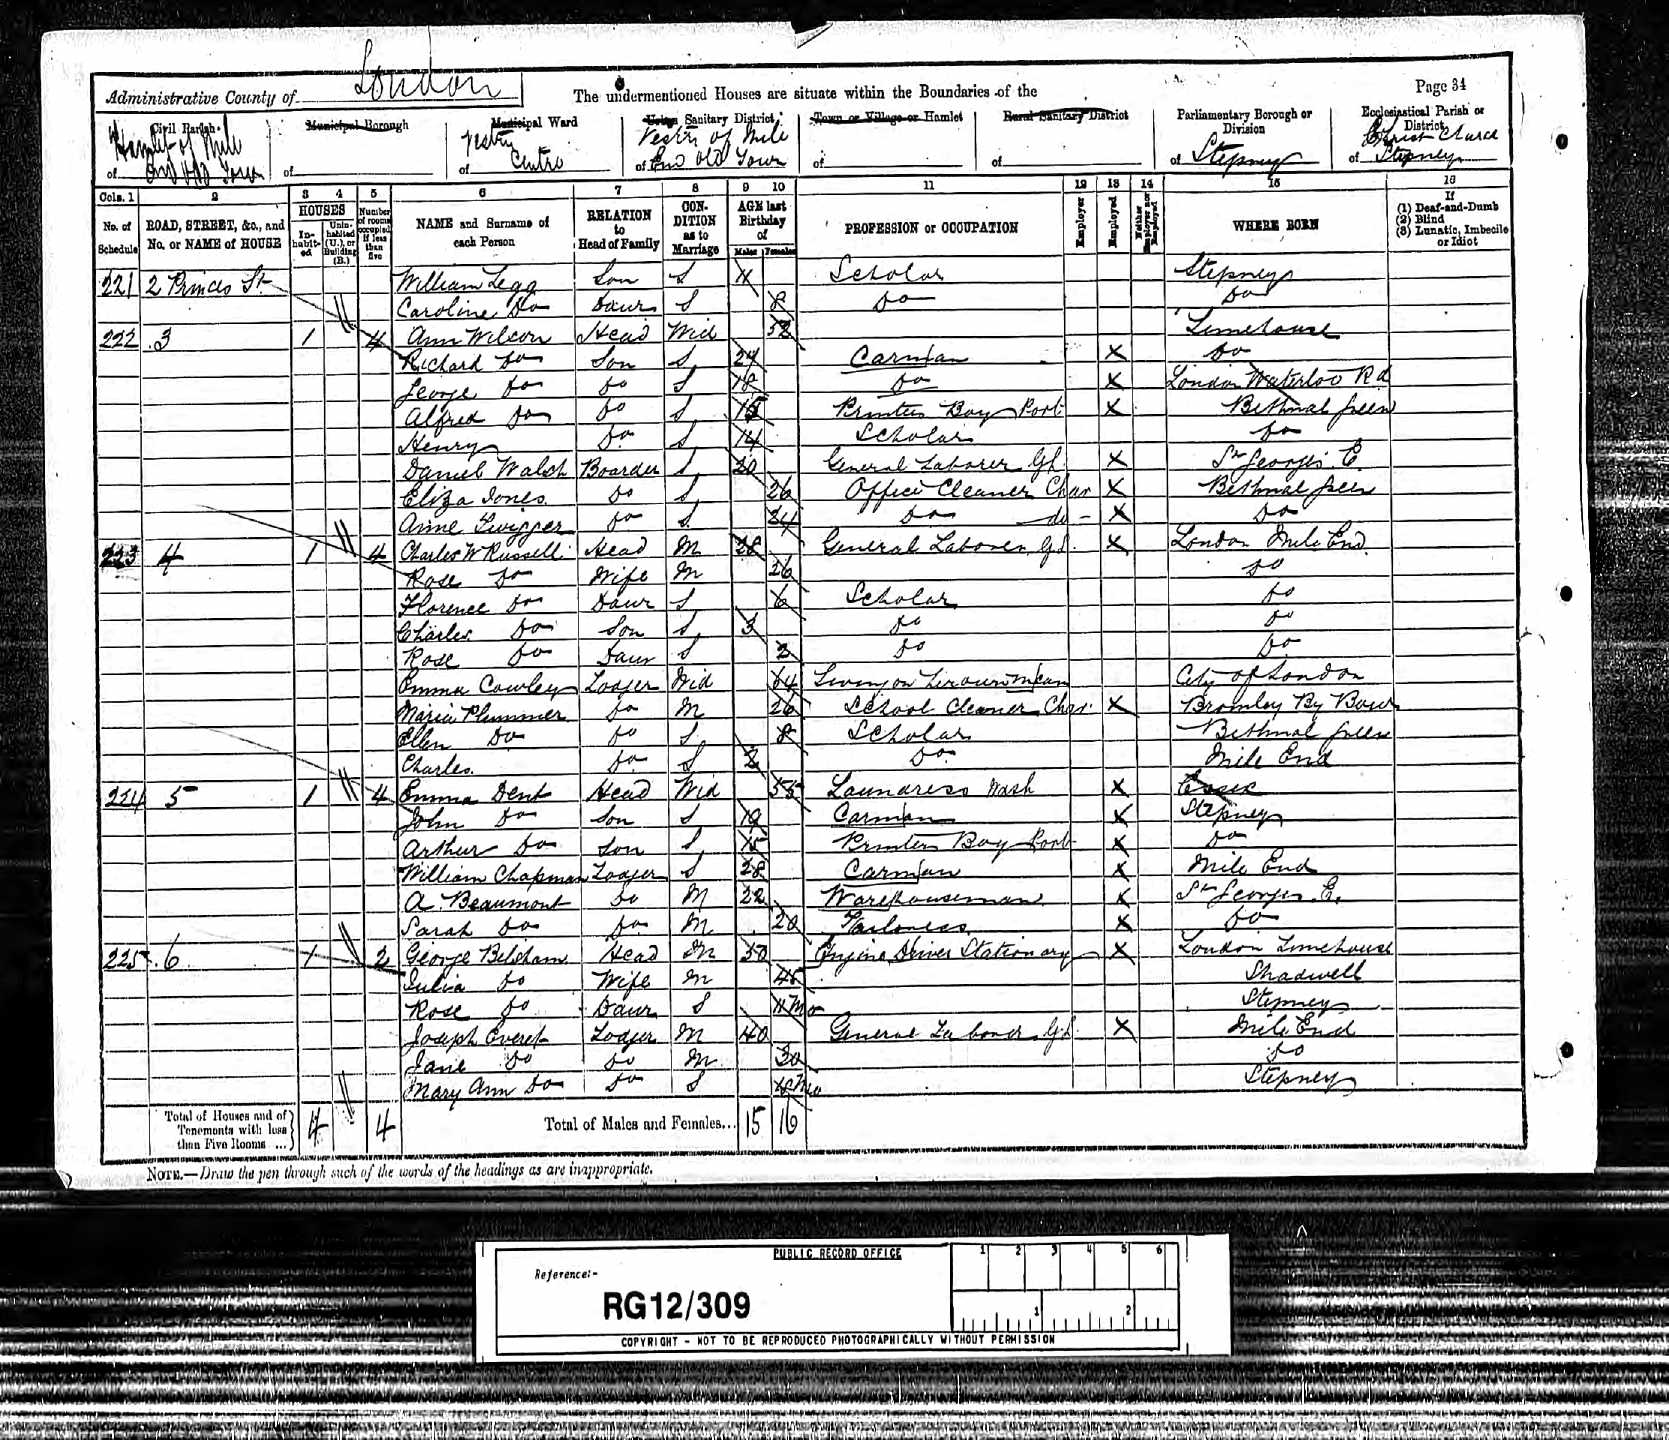 Administrative County of London
The undermentioned Houses are situate within the Boundaries of the
Page 34
Civil Parish of Hamlet of Mile End Old Town
Municipal Borough of
Municipal Ward of Vestry Centre
Urban Sanitary District of Vestry of Mile End Old Town
Town or Village or Hamlet of
Rural Sanitary District of
Parliamentary Borough or Division of Stepney
Ecclesiastical Parish or District of Christ Church Stepney
Cols. 1 2 3 4 5 6 7 8 9 10 11 12 13 14 15 16
No. of Schedule
ROAD, STREET, &c., and No. or NAME of HOUSE
HOUSES
Inhabited
Uninhabited (U.), or Building (B.)
Number of rooms occupied if less than five
NAME and Surname of each Person
RELATION to Head of Family
CONDITION as to Marriage
AGE last Birthday of
Males Females
PROFESSION or OCCUPATION
Employer
Employed
Neither Employer nor Employed
WHERE BORN
If
(1) Deaf-and-Dumb
(2) Blind
(3) Lunatic, Imbecile or Idiot
221 2 Princes St William Legg Son S 11 Scholar Stepney
Caroline Do Daur S 8 Do Do
222 3 1 4 Ann Wilcon Head Wid 52 Limehouse
Richard Do Son S 24 Carman X Do
George Do Do S 18 Do X London Waterloo Rd
Alfred Do Do S 15 Printers Boy Port X Bethnal Green
Henry Do S 14 Scholar Do
Daniel Walsh Boarder S 20 General Laborer Gl X St Georges E.
Eliza Jones Do S 26 Office Cleaner Char X Bethnal Green
Anne Twigger Do S 24 Do do X Do
223 4 1 4 Charles W Russell Head M 28 General Laborer Gl X London Mile End
Rose Do Wife M 26 Do
Florence Do Daur S 6 Scholar Do
Charles Do Son S 3 Do Do
Rose Do Daur S 2 Do Do
Emma Cowley Lodger Wid 64 Living on means City of London
Maria Plummer Do M 26 School Cleaner Char X Bromley By Bow
Ellen Do Do S 8 Scholar Bethnal Green
Charles Do S 2 Do Mile End
224 5 1 4 Emma Dent Head Wid 55 Laundress Wash X Essex
John Do Son S 19 Carman X Stepney
Arthur Do Son S 15 Printers Boy Port X Do
William Chapman Lodger S 28 Carman X Mile End
A. Beaumont Do M 22 Warehouseman X St Georges E.
Sarah Do Do M 20 Tailoress X Do
225 6 1 2 George Belsham Head M 50 Engine Driver Stationary X London Limehouse
Julia Do Wife M 45 Shadwell
Rose Do Daur S 11 Mo Stepney
Joseph Everet Lodger M 40 General Laborer Gl X Mile End
Jane Do Do M 30 Do
Mary Ann Do Do S Mo Stepney
Total of Houses and of Tenements with less than Five Rooms ... 4 4 Total of Males and Females... 15 16
NOTE.—Draw the pen through such of the words of the headings as are inappropriate.
PUBLIC RECORD OFFICE
1 2 3 4 5 6
Reference:-
RG12/309
1 2
COPYRIGHT - NOT TO BE REPRODUCED PHOTOGRAPHICALLY WITHOUT PERMISSION